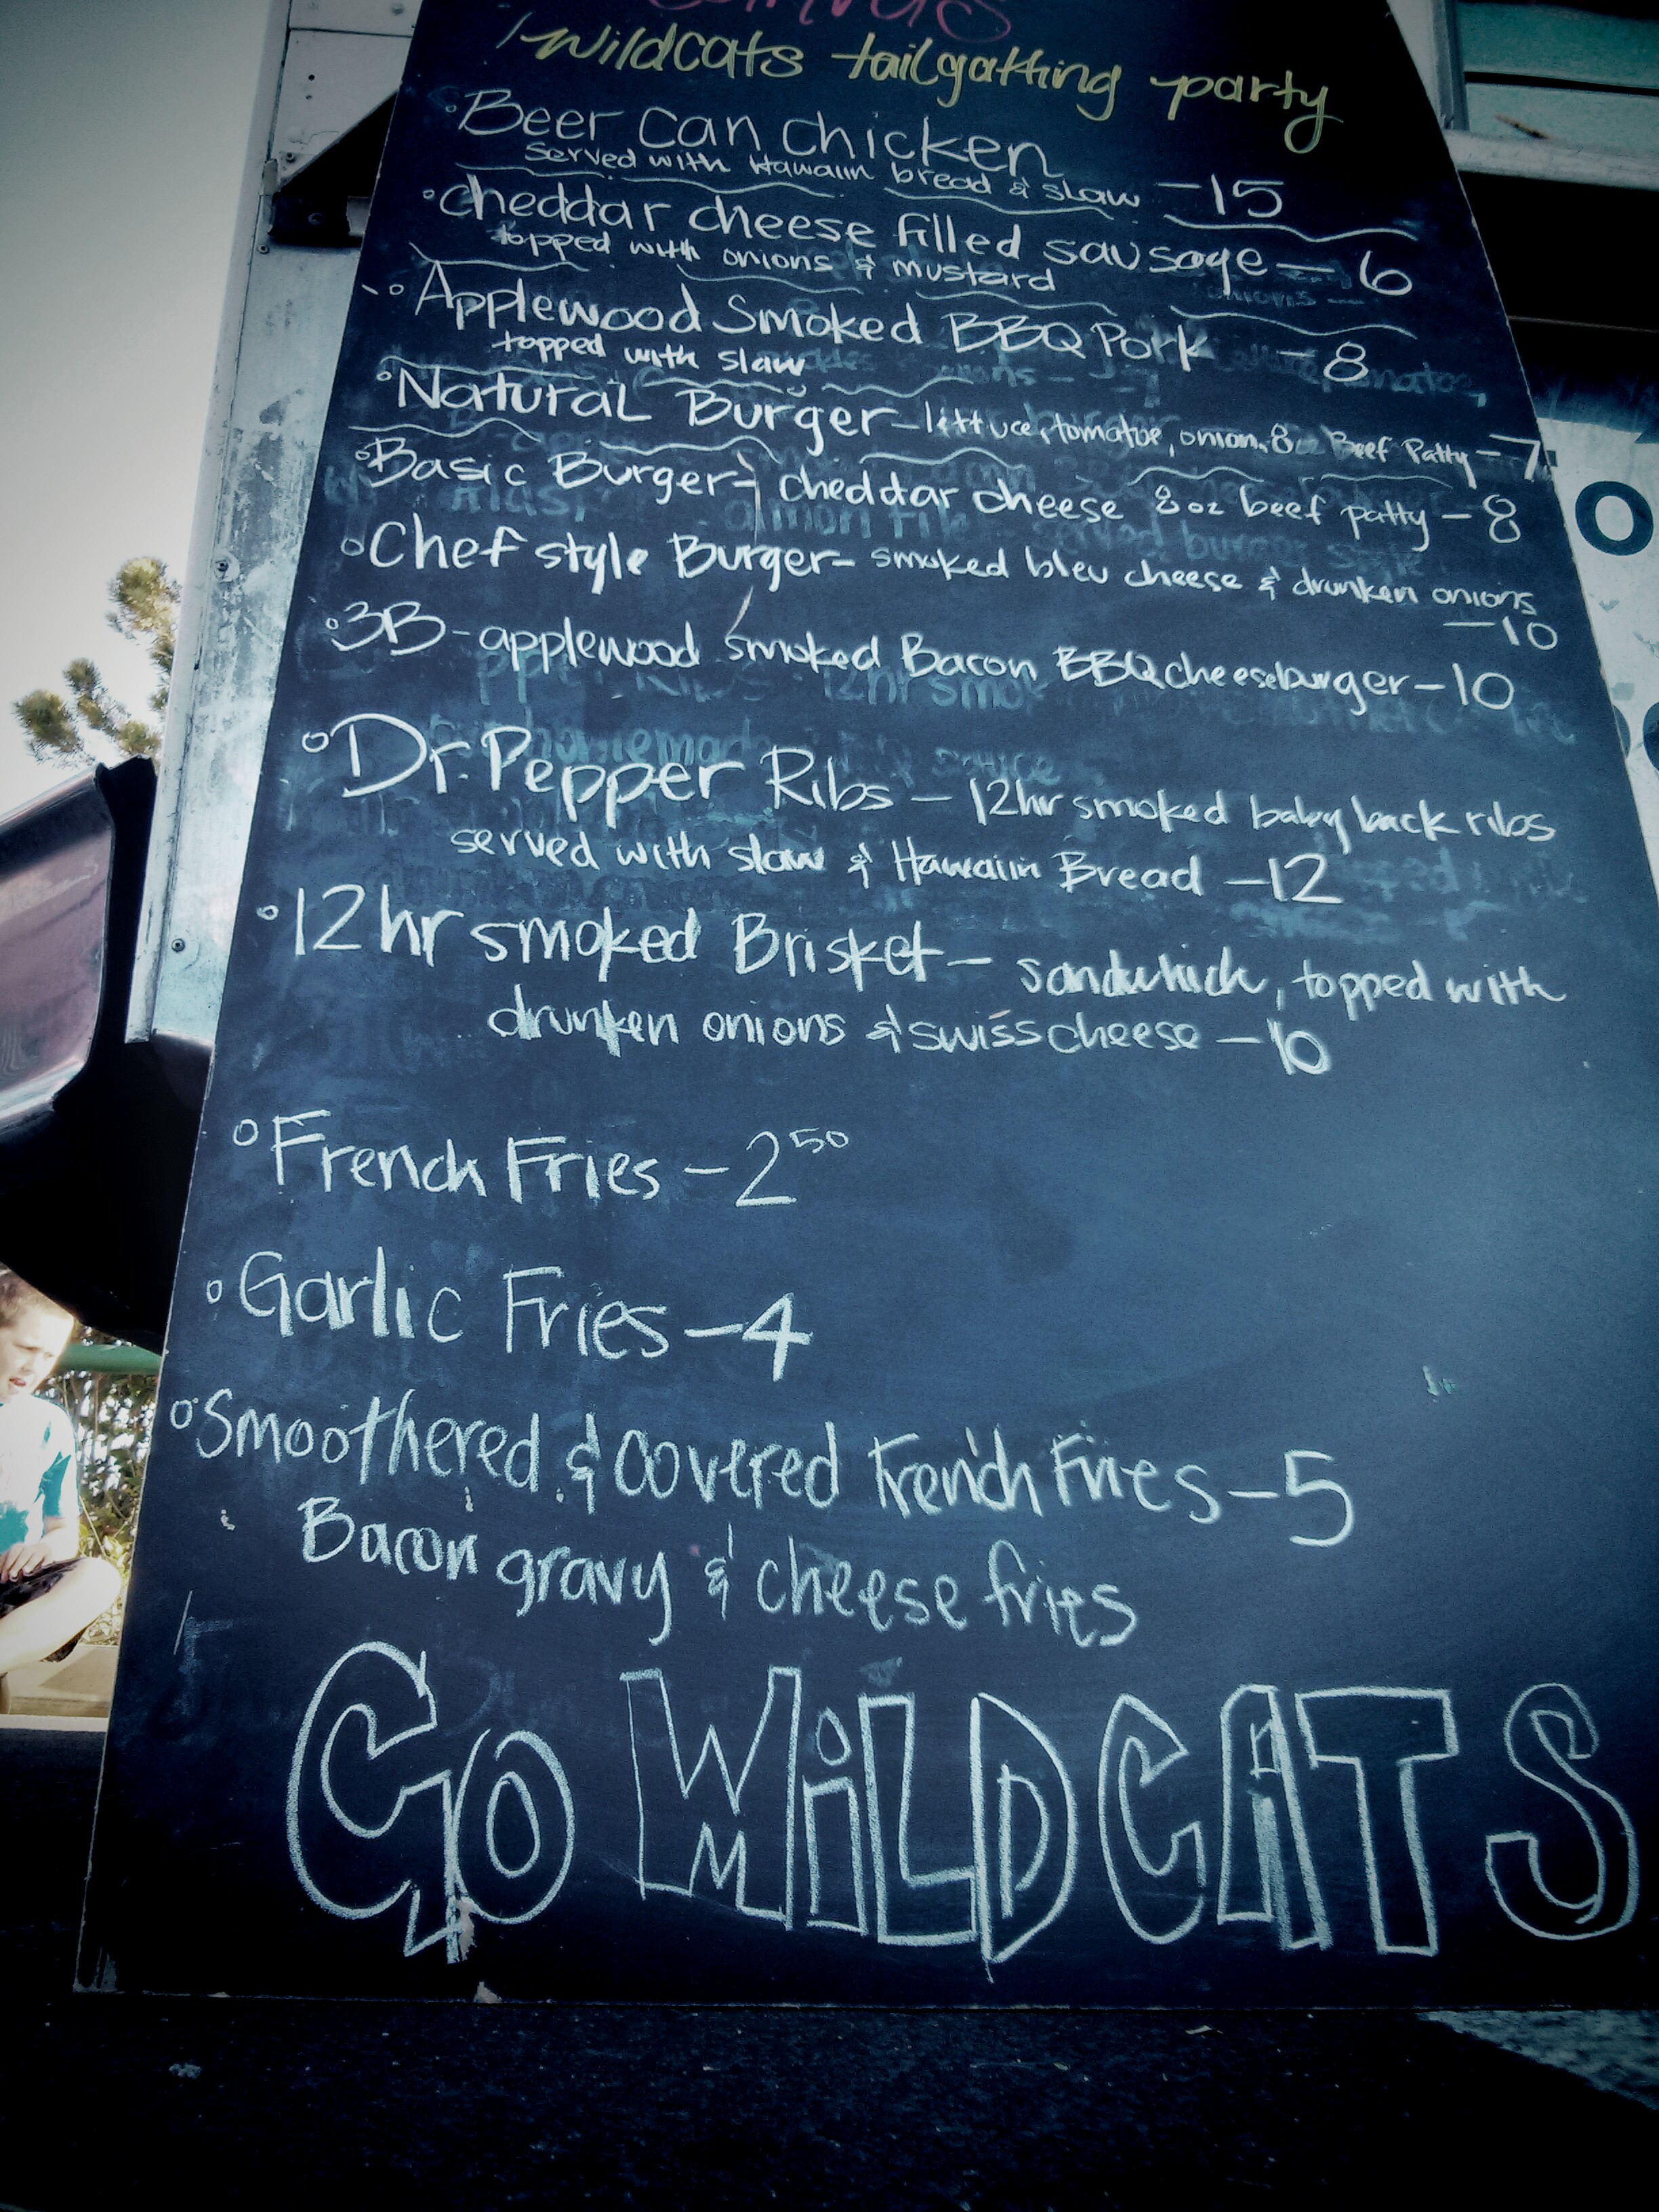 wildcats tailgatting party
Beer Can Chicken
Served with Hawaiin bread & slaw - 15
Cheddar cheese filled sausage - 6
topped with onions & mustard
Applewood Smoked BBQ Pork - 8
topped with slaw
Natural Burger - lettuce, tomatoe, onion, 8oz Beef Patty - 7
Basic Burger - cheddar cheese 8oz beef patty - 8
Chef style Burger - smoked bleu cheese & drunken onions
- 10
3B - applewood smoked Bacon BBQ cheeseburger - 10
Dr. Pepper Ribs - 12hr smoked baby back ribs
served with slaw & Hawaiin Bread - 12
12hr smoked Brisket - sandwhich, topped with
drunken onions & swiss cheese - 10
French Fries - 2 50
Garlic Fries - 4
Smoothered & covered French Fries - 5
Bacon gravy & cheese fries
GO WiLDCATS